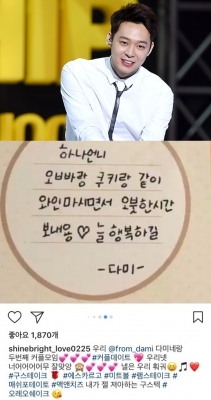 하나언니
오빠랑 쿠키랑 같이
와인마시면서 오붓한시간
보내용♡ 늘 행복하길
-다미-
좋아요 1,870개
shinebright_love0225 우리 @from_dami 다미네랑
두번째 커플모임💕💕💕💕#커플데이트 💖 우리넷
너어어어어무 잘맞앙 🙈💕💕 낼은 우리 훠궈😆🎵❤️
#구스테이크 🥩 #에스카르고 #미트볼 #램스테이크 #
매쉬포테이토 #맥앤치즈 내가 젤 제아하는 구스텍 #
오레오쉐이크 😘